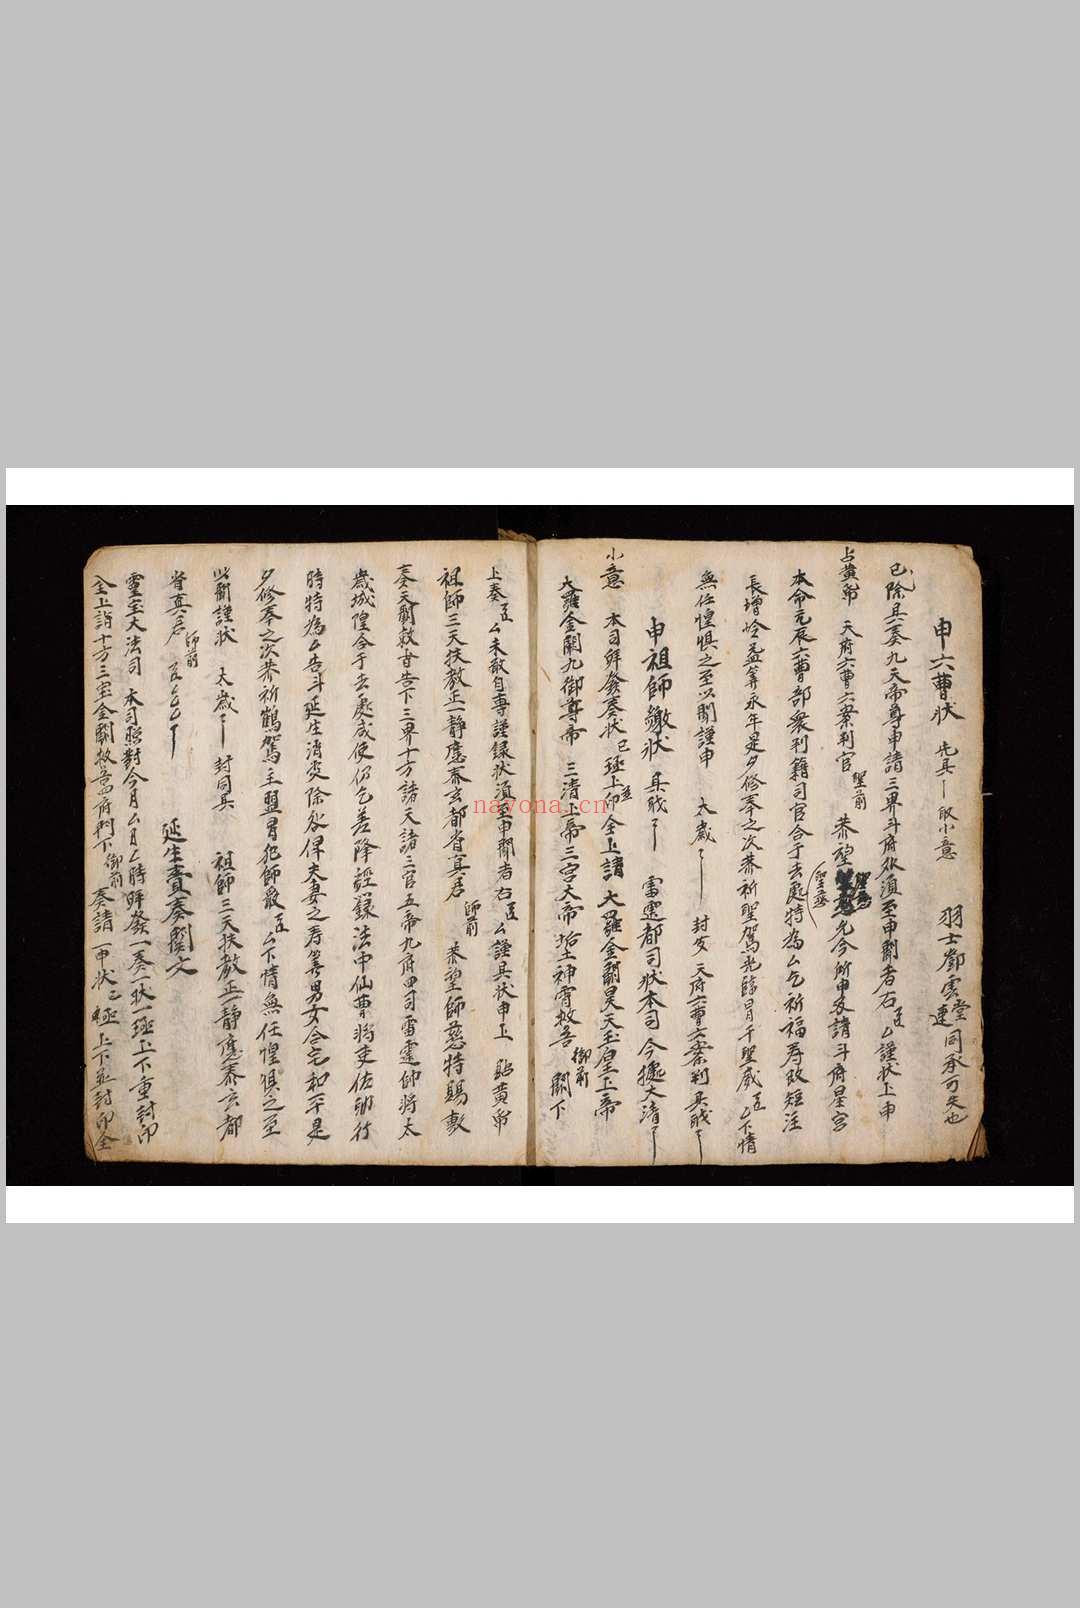 申六曹狀 先具 取小意 羽士鄧雲堂連同承可失也
已除具奏九天帝尊申請三界斗府外須至申聞者右 謹狀上申
占黃帋 天府六曹六案判官 聖前 恭望 聖慈 允今所申爰請斗府星宮
本命元辰六曹部衆判籍司官合于去處特為厶乞祈福壽改短注
長增岭益筭永年是夕修奉之次恭祈聖駕光臨冒干聖威 厶下情
無任惶惧之至以聞謹申 太歲 封皮 天府六曹六案判具戝
申祖師繳狀 具戝 雷霆都司狀本司 今據大清
小意 本司幷發奏狀 已 極上印全上請 大羅金闕昊天玉皇上帝
大羅金闕九御尊帝 三清上帝三宮大帝后土神霄 御前 闕下
上奏 厶未敢自專謹録狀須至申聞者右 厶謹具狀申上 貼黃帋
祖師三天扶教正一靜應泰玄都省真君 師前 恭望師慈特賜敷
奏天闕敕旨告下三界十方諸天諸三官五帝九府四司雷霆帥將太
歲城隍合于去處咸使仍乞差降經籙法中仙曹將吏佐師行
時特為厶告斗延生消灾除咎俾夫妻之壽筭男女合宅和平是
夕修奉之次恭祈鶴駕主盟冒犯師嚴 厶下情無任惶惧之至
以聞謹狀 太歲 封同具 祖師三天扶教正一靜應泰玄都
省真君 師前
延生賫奏関文
靈宝大法司 本司照對今月厶日厶時幷發一奏一狀一極上下重封印
全上詣十方三宝金闕 府門下 御前 奏請 一申狀 極上下並封印全
nayona.cn